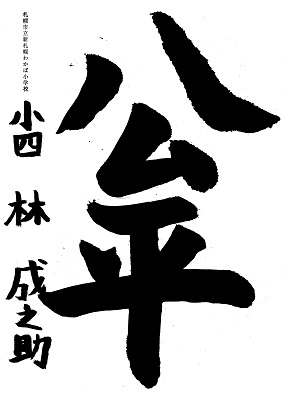 公平
札幌市立新札幌わかば小学校
小四 林 成之助